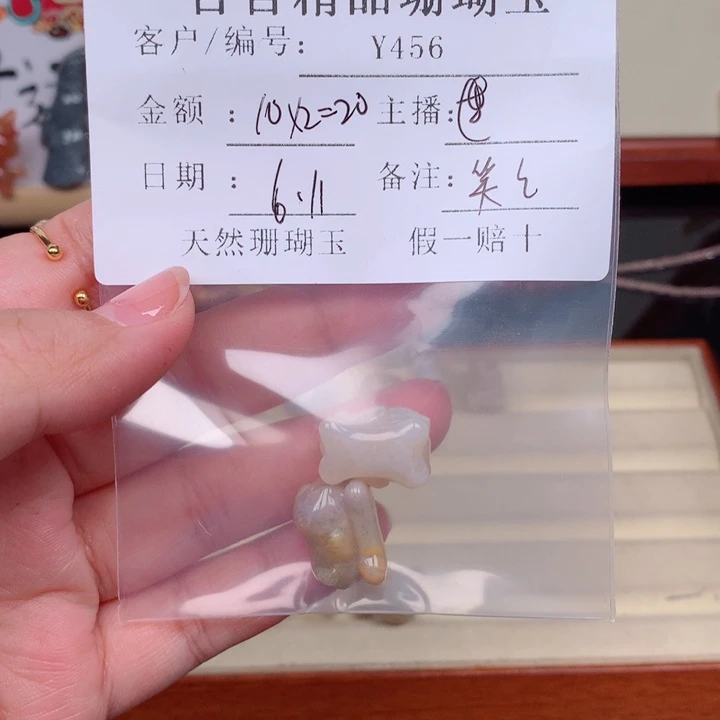 精品珊瑚玉
客户/编号: Y456
金额: 10×2=20 主播:
日期: 6.11 备注: 笑
天然珊瑚玉 假一赔十